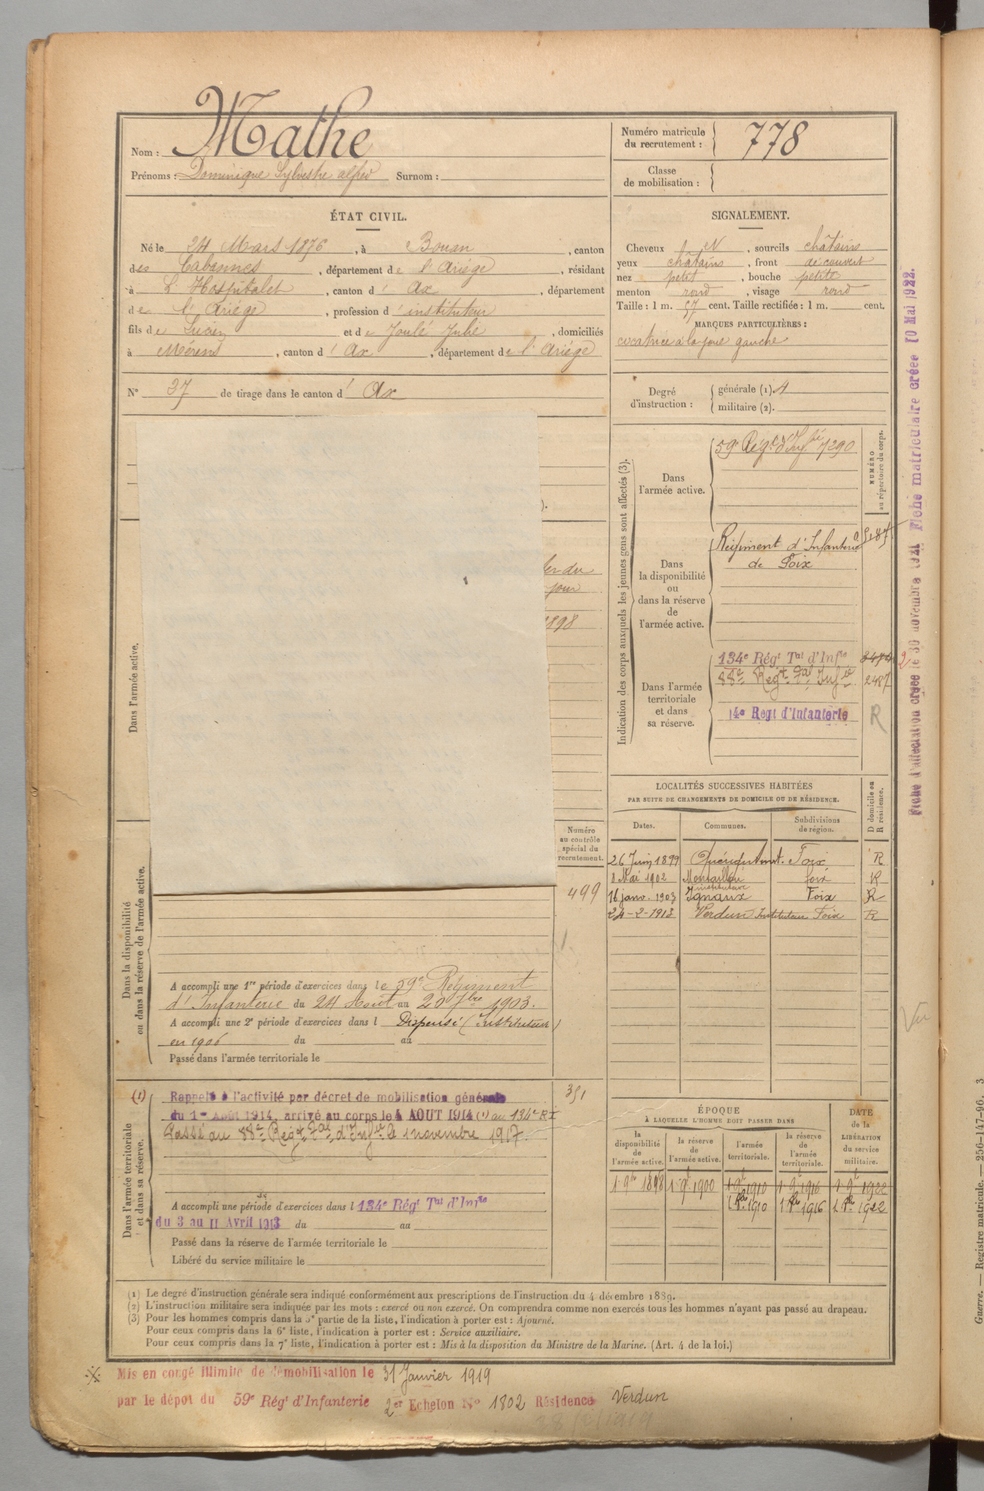 Nom : Mathe
Prénoms : Dominique Sylvestre alfred Surnom :
Numéro matricule du recrutement : 778
Classe de mobilisation :
ÉTAT CIVIL.
Né le 24 Mars 1876, à Bouan, canton
des Cabannes, département de l'Ariège, résidant
à L'Hospitalet, canton d'Ax, département
de l'Ariège, profession d'instituteur
fils de et de Joulé Julie, domiciliés
à Mérens, canton d'Ax, département de l'Ariège
N° 37 de tirage dans le canton d'Ax
SIGNALEMENT.
Cheveux N, sourcils châtains
yeux châtains, front découvert
nez petit, bouche petite
menton rond, visage rond
Taille : 1 m. 57 cent. Taille rectifiée : 1 m. cent.
MARQUES PARTICULIÈRES :
cicatrice à la joue gauche
Degré d'instruction : générale (1). 4
militaire (2).
Indication des corps auxquels les jeunes gens sont affectés (3).
NUMÉRO au répertoire du corps.
Dans l'armée active.
59e Régt d'Infie 7290
Dans la disponibilité ou dans la réserve de l'armée active.
Régiment d'Infanterie
de Foix
Dans l'armée territoriale et dans sa réserve.
134e Régt Tal d'Infie
88e Régt Tal Infie 2487
14e Regt d'Infanterie R
Dans l'armée active.
1898
Numéro au contrôle spécial du recrutement.
499
Dans la disponibilité ou dans la réserve de l'armée active.
A accompli une 1re période d'exercices dans le 59e Régiment
d'Infanterie du 24 Août au 20 7bre 1903.
A accompli une 2e période d'exercices dans l Dispensé (Instituteur)
en 1906 du au
Passé dans l'armée territoriale le
LOCALITÉS SUCCESSIVES HABITÉES
PAR SUITE DE CHANGEMENTS DE DOMICILE OU DE RÉSIDENCE.
Dates. Communes. Subdivisions de région. D domicile ou R résidence.
26 Juin 1899 Foix R
1 Mai 1902 Foix R
16 janv. 1903 Ignaux instituteur Foix R
24-2-1913 Verdun Instituteur Foix R
Dans l'armée territoriale et dans sa réserve.
(1) Rappelé à l'activité par décret de mobilisation générale 351
du 1er Août 1914, arrivé au corps le 4 AOUT 1914 (1) au 134e RI
Passé au 88e Régt Tal d'Infie le 1 novembre 1917.
A accompli une période d'exercices dans l 134e Régt Tal d'Infie
du 3 au 11 Avril 1913 du au
Passé dans la réserve de l'armée territoriale le
Libéré du service militaire le
ÉPOQUE
À LAQUELLE L'HOMME DOIT PASSER DANS
DATE de la LIBÉRATION du service militaire.
la disponibilité de l'armée active. la réserve de l'armée active. l'armée territoriale. la réserve de l'armée territoriale.
1 9bre 1898 1 9bre 1900 1 9bre 1910 1 9bre 1916 1 9bre 1922
1 8bre 1910 1 8bre 1916 1 8bre 1922
(1) Le degré d'instruction générale sera indiqué conformément aux prescriptions de l'instruction du 4 décembre 1889.
(2) L'instruction militaire sera indiquée par les mots : exercé ou non exercé. On comprendra comme non exercés tous les hommes n'ayant pas passé au drapeau.
(3) Pour les hommes compris dans la 5e partie de la liste, l'indication à porter est : Ajourné.
Pour ceux compris dans la 6e liste, l'indication à porter est : Service auxiliaire.
Pour ceux compris dans la 7e liste, l'indication à porter est : Mis à la disposition du Ministre de la Marine. (Art. 4 de la loi.)
Mis en congé illimité de démobilisation le 31 Janvier 1919
par le dépôt du 59e Régt d'Infanterie 2er Echelon No 1802 Résidence Verdun
Fiche d'affectation créée le 30 novembre 1921 Fiche matriculaire créée 10 Mai 1922.
Vu
Guerre. — Registre matricule. — 256-147-96. 3